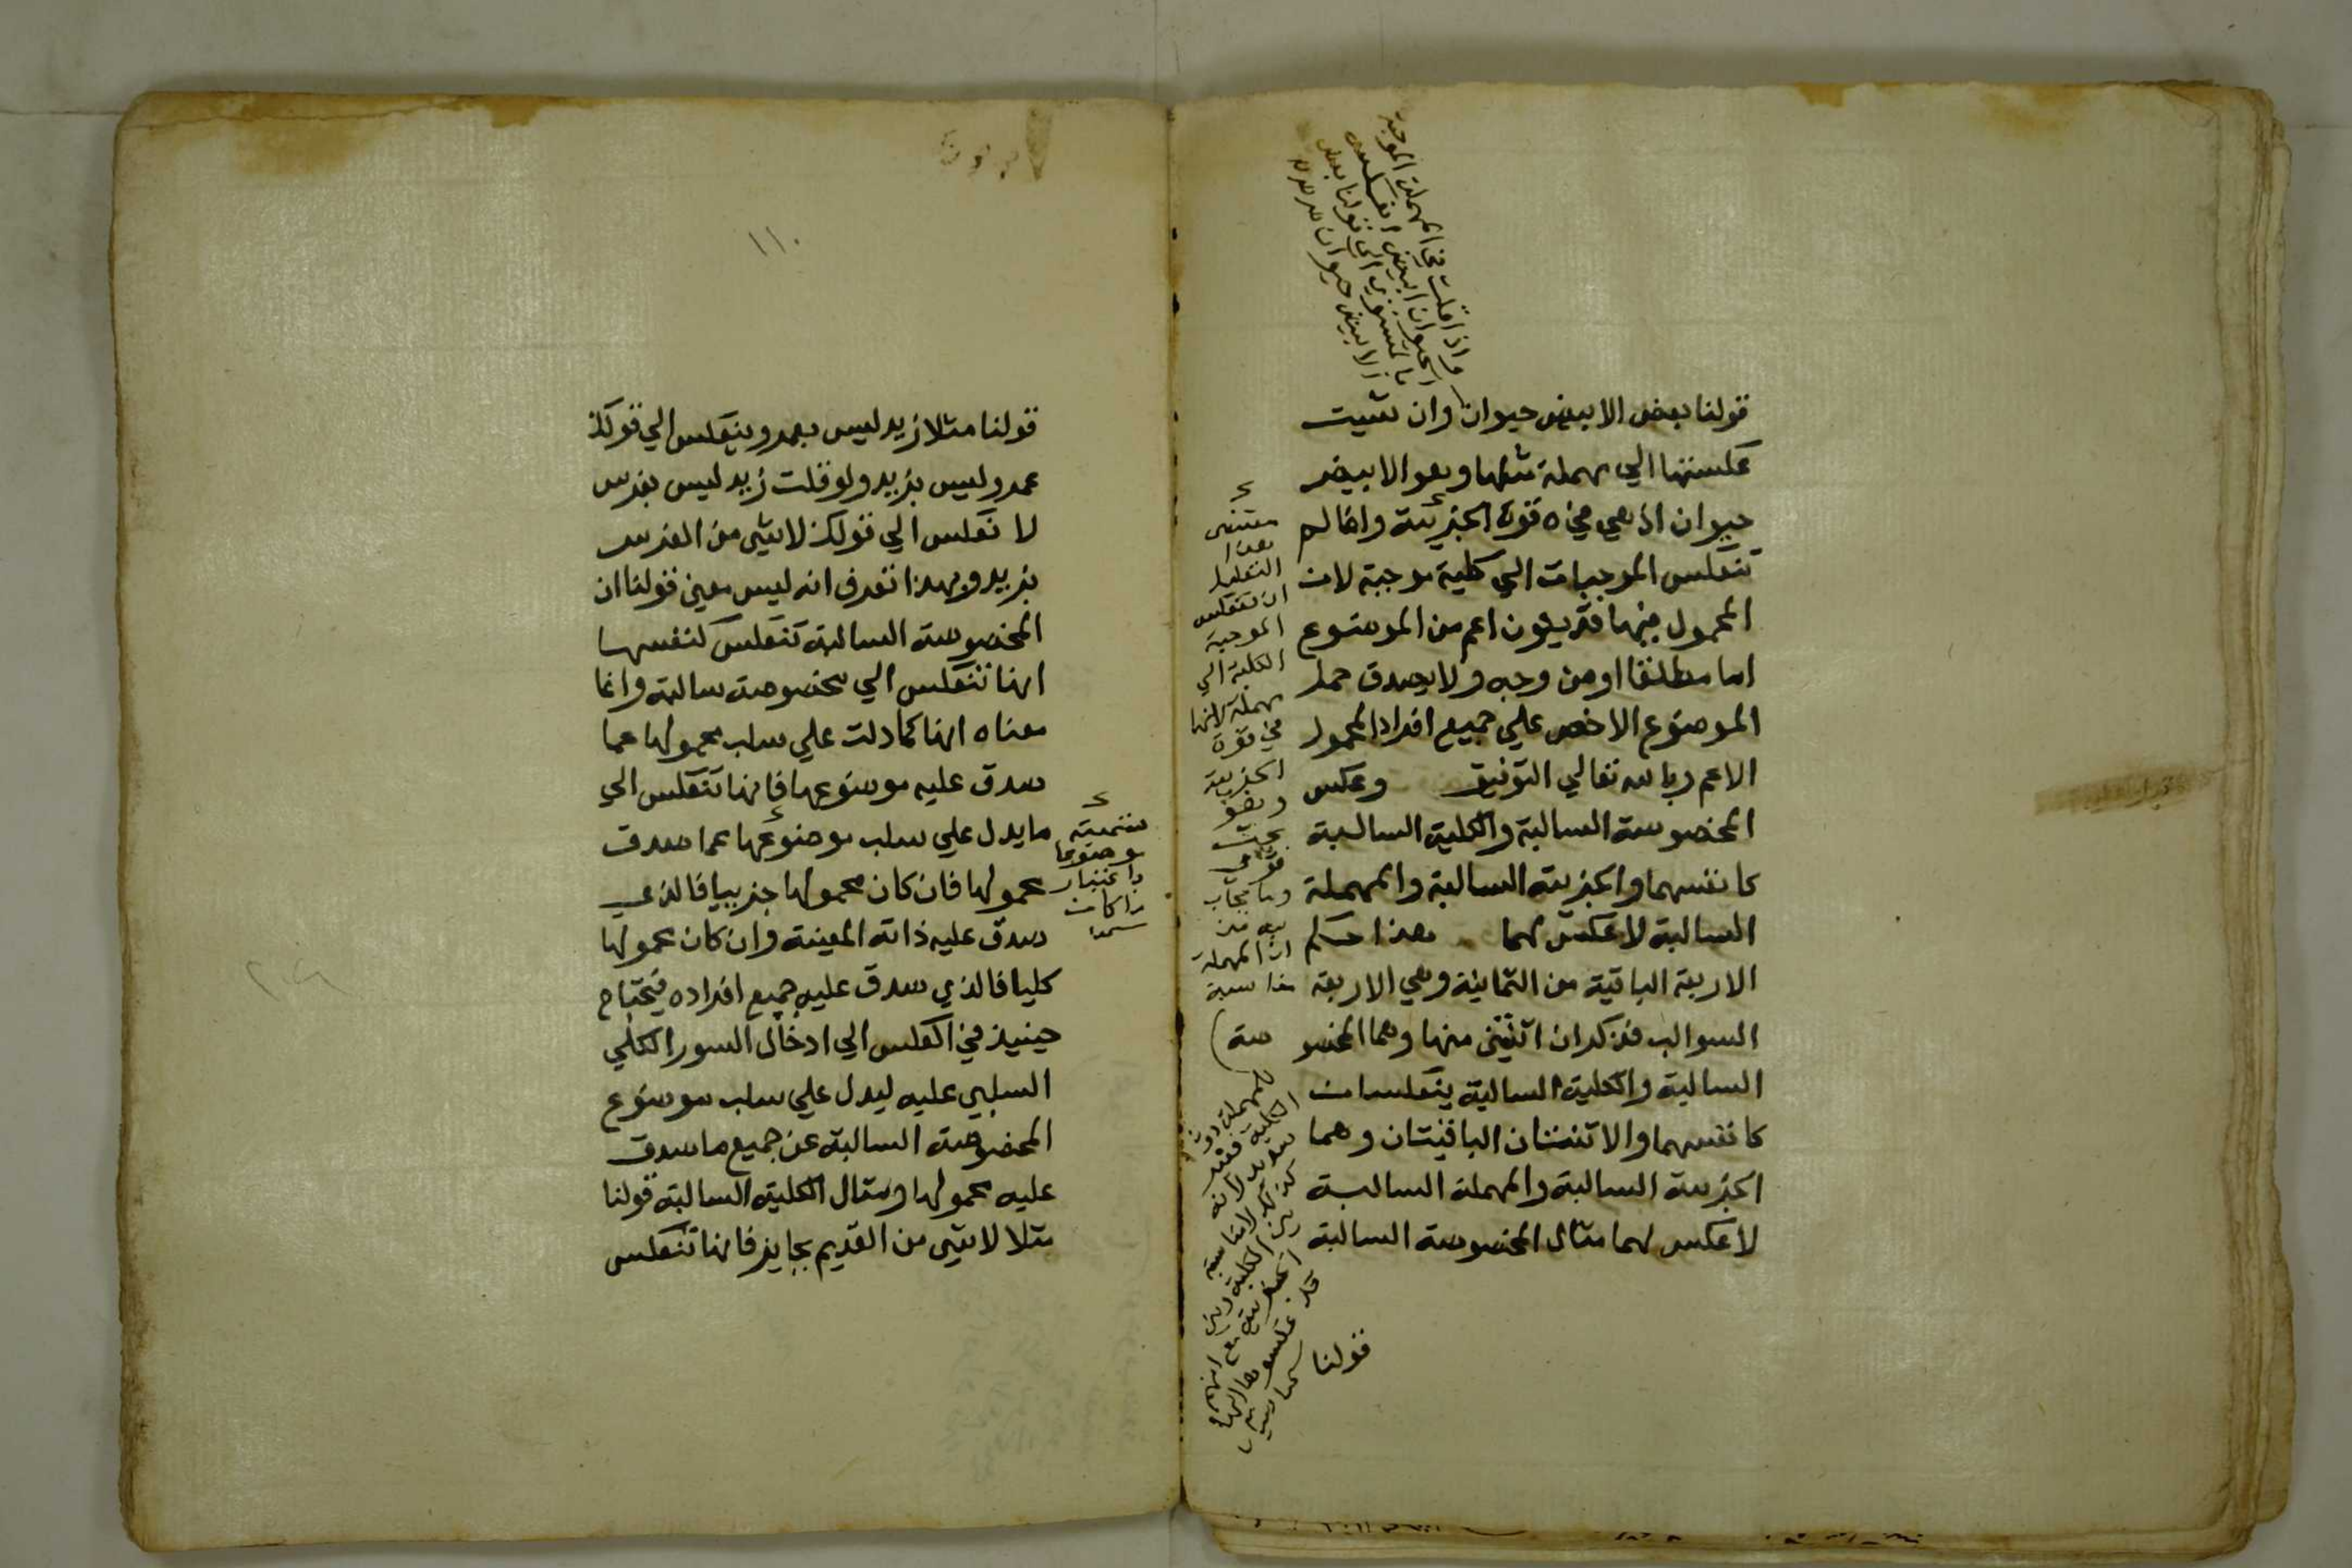 قولنا بعض الابيض حيوان وان شيت
عكستها الي مهملة مثلها وهو الابيض
حيوان اذ هي في قوة الجزئية وانما لم
تنعكس الموجبات الي كلية موجبة لان
المحمول فيها قد يكون اعم من الموضوع
اما مطلقا او من وجه ولا يصدق حمل
الموضوع الاخص علي جميع افراد المحمول
الاعم وبالله تعالي التوفيق وعكس
المخصوصة السالبة والكلية السالبة
كانفسهما والجزئية السالبة والمهملة
السالبة لا عكس لهما هذا حكم
الاربعة الباقية من الثمانية وهي الاربعة
السوالب فذكر ان اثنتين منها وهما المخصوصة
السالبة والكلية السالبة ينعكسان
كانفسهما والاثنتان الباقيتان وهما
الجزئية السالبة والمهملة السالبة
لا عكس لهما مثال المخصوصة السالبة
قولنا
واذا قلت في المهملة الموجبة
الحيوان ابيض انعكس
بالمستوي الي قولنا بعض
الابيض حيوان
مقتضى
هذا
التعليل
ان تنعكس
الموجبة
الكلية الي
مهملة لانها
في قوة
الجزئية
وهو
بحث
قوي
ويجاب
عنه من
ان المهملة
مناسبة
للمهملة دون
الكلية فقد
١١٠
قولنا مثلا زيد ليس بعمرو ينعكس الي قولك
عمرو ليس بزيد ولو قلت زيد ليس بفرس
لا نعكس الي قولك لا شي من الفرس
بزيد وبهذا تعرف انه ليس معني قولنا ان
المخصوصة السالبة تنعكس كنفسها
انها تنعكس الي مخصوصة سالبة وانما
معناه انها كما دلت علي سلب محمولها عما
صدق عليه موضوعها فانها تنعكس الي
ما يدل علي سلب موضوعها عما صدق
محمولها فان كان محمولها جزييا فالذي
صدق عليه ذاته المعينة وان كان محمولها
كليا فالذي صدق عليه جميع افراده فيحتاج
حينيذ في العكس الي ادخال السور الكلي
السلبي عليه ليدل علي سلب موضوع
المخصوصة السالبة عن جميع ما صدق
عليه محمولها ومثال الكلية السالبة قولنا
مثلا لا شي من القديم بجايز فانها تنعكس
تسميته
موضوعا
باعتبار
ما كان